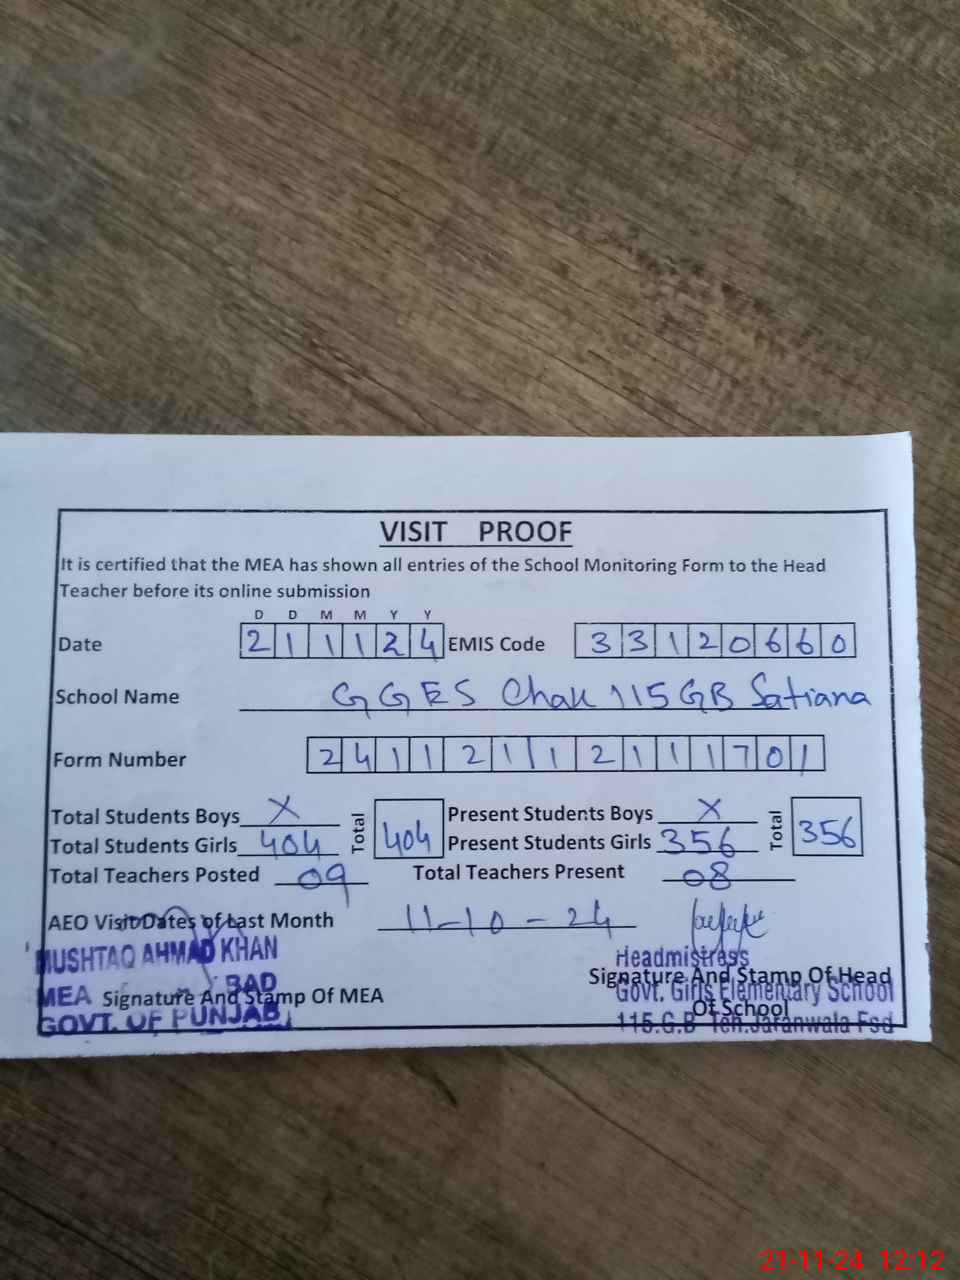 VISIT PROOF
It is certified that the MEA has shown all entries of the School Monitoring Form to the Head
Teacher before its online submission
D D M M Y Y
Date 2 1 1 1 2 4 EMIS Code 3 3 1 2 0 6 6 0
School Name GGES Chak 115GB Satiana
Form Number 2 4 1 1 2 1 1 2 1 1 1 7 0 1
Total Students Boys X Total 404 Present Students Boys X Total 356
Total Students Girls 404 Present Students Girls 356
Total Teachers Posted 09 Total Teachers Present 08
AEO Visit Dates of Last Month 11-10-24
MUSHTAQ AHMAD KHAN
MEA BAD
GOVT. OF PUNJAB
Signature And Stamp Of MEA
Headmistress
Govt. Girls Elementary School
115.G.B Teh.Jaranwala Fsd
Signature And Stamp Of Head
Of School
21-11-24 12:12